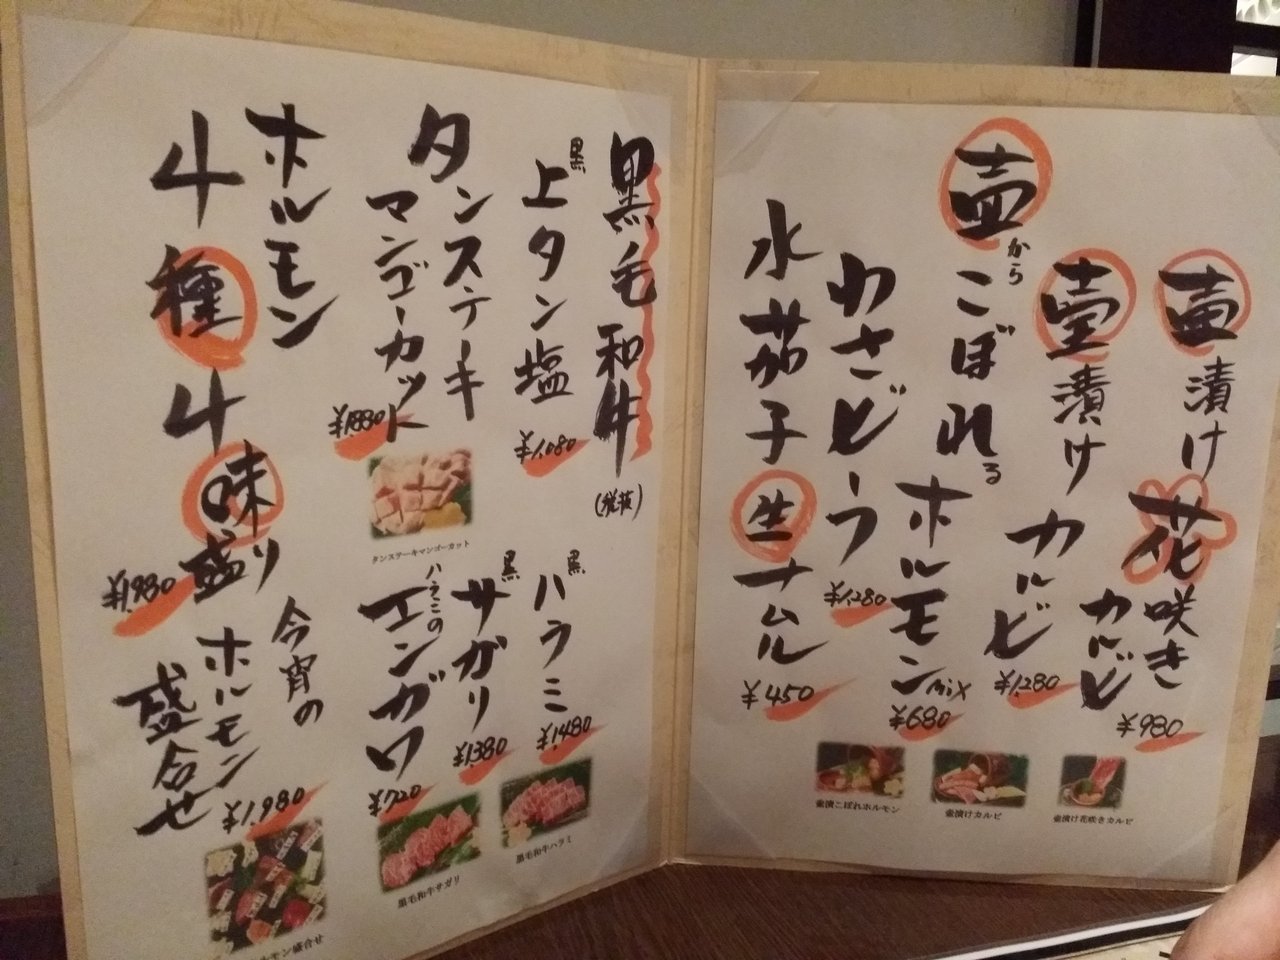 壺漬け花咲き
カルビ
¥980
壺漬け
カルビ
¥1,280
壺からこぼれる
ホルモンmix
¥680
わさビーフ
¥1,280
水茄子生ナムル
¥450
壺漬こぼれホルモン
壺漬けカルビ
壺漬け花咲きカルビ
黒毛和牛(税抜)
黒
上タン塩
¥1,080
タンステーキ
マンゴーカット
¥1880
タンステーキマンゴーカット
ホルモン
4種4味盛り
¥1,980
黒
ハラミ
¥1,480
黒
サガリ
¥1380
ハラミの
エンガワ
¥720
今宵の
ホルモン
盛合せ
¥1,980
黒毛和牛ハラミ
黒毛和牛サガリ
モン盛合せ